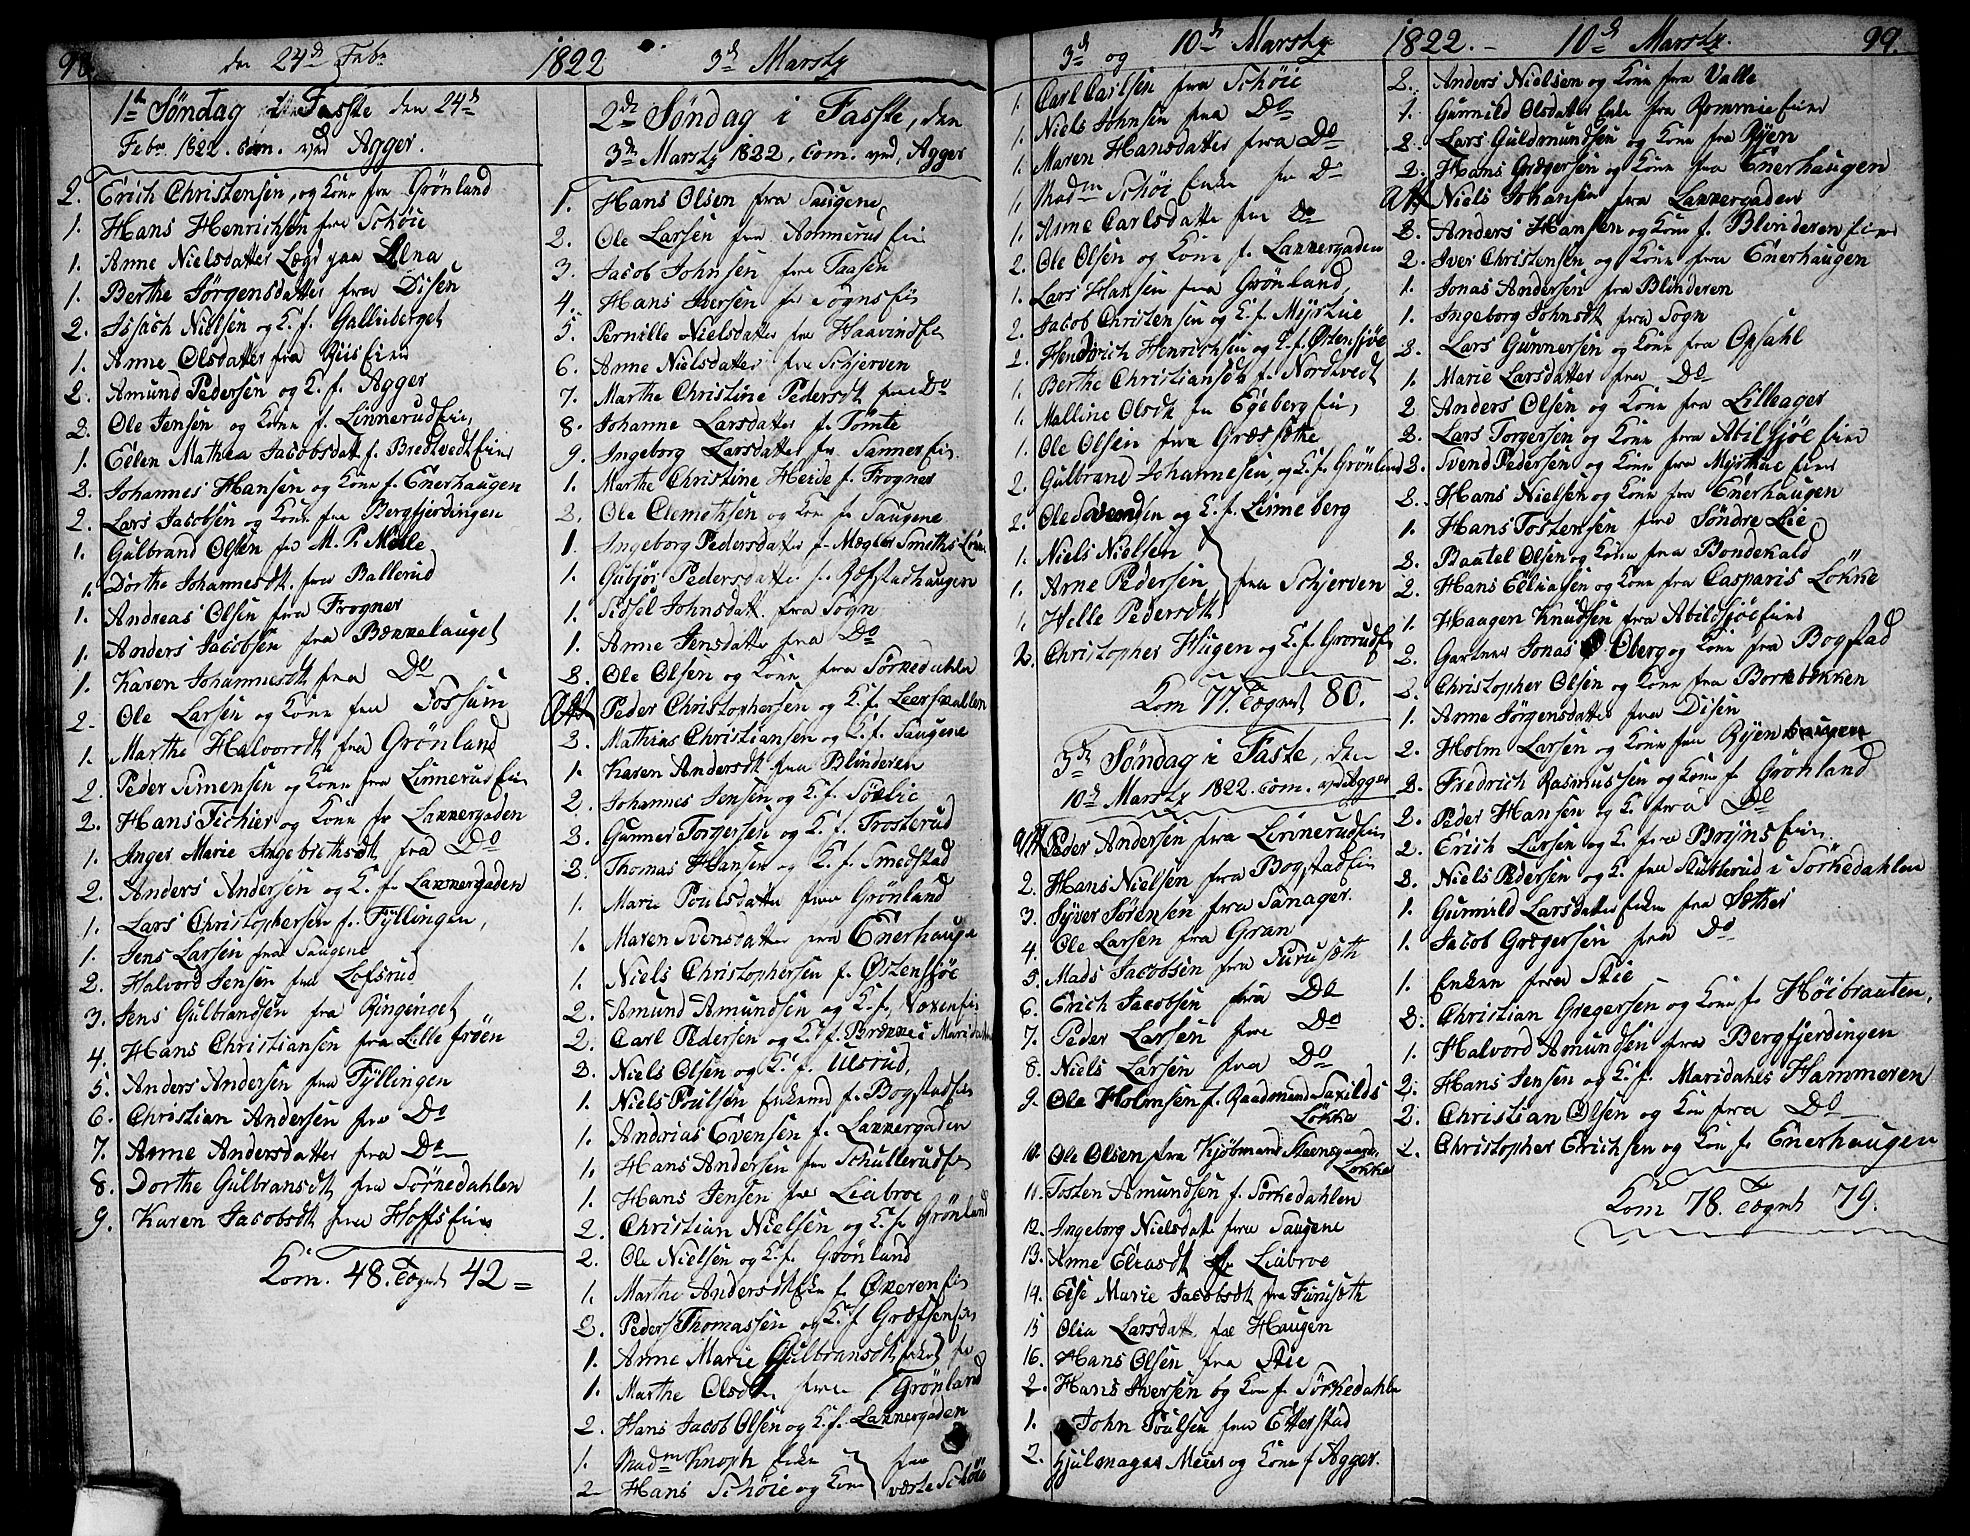 98.
den 24de Febr
1822
3de Martz
1te Søndag i Faste den 24de
Febr 1822. com. ved Agger.
2. Erich Christensen, og Kone fra Grønland
1. Hans Henrichsen fra Schøie
1. Anne Nielsdatter Lægd paa Alna
1. Berthe Jørgensdatter fra Disen
2. Issach Nielsen og K. f. Galleberget
1. Anne Olsdatter fra Riis Eier
2. Amund Pedersen og K. f. Agger
2. Ole Jensen og Kone f. Linnerud Eie,
1. Ellen Mathea Jacobsdatt. f. Bredtvedt Eier
2. Johannes Hansen og Kone f. Enerhaugen
2. Lars Jacobsen og Kone fra Bergfjerdingen
1. Gulbrand Olsen fra M. P. Mølle
1. Dorthe Johannesdt. fra Ballerud
1. Andreas Olsen fra Frogner
1. Anders Jacobsen fra Bænnelauget
1. Karen Johannesdt fra Do
2. Ole Larsen og Kone fra Fossum
1. Marthe Halvorsdt fra Grønland
2. Peder Simensen og Kone fra Linnerud Eie
2. Hans Fichier og Kone fr Lakkergaden
1. Inger Marie Ingebrethsdt fra Do
2. Anders Andersen og K. f. Lakkergaden
1. Lars Christophersen f. Tyllingen,
1. Jens Larsen fra Saugene
2. Halvord Jensen fra Lofsrud
3. Jens Gulbrandsen fra Ringinget
4. Hans Christiansen fra Lille Frøen
5. Anders Andersen fra Tyllingen
6. Christian Andersen fra Do
7. Anne Andersdatter fra Do
8. Dorthe Gulbransdt fra Sørkedahlen
9. Karen Jacobsdt fra Hoffs Eier
Kom. 48. Tegnet 42 =
2de Søndag i Faste, den
3de Martz 1822, com. ved, Agger
1. Hans Olsen fra Saugene,
2. Ole Larsen fra Ammerud Eie
3. Jacob Johnsen fra Taasen
4. Hans Iversen fr Sogns Eie
5. Pernille Nielsdatter fra Haavind Eie
6. Anne Nielsdatter fra Schjerven
7. Marthe Christine Pedersdt fra Do
8. Johanne Larsdatter f. Tømte
9. Ingeborg Larsdatter fr. Sanner Eie
1. Marthe Christine Heide f. Frogner
2. Ole Clemethsen og Kone f. Saugene
1. Ingeborg Pedersdatter f. Mægler Smeths Løkke
1. Gubjør Pedersdatter fr. Refstadhaugen
1. Sidsel Johnsdatt. fra Sogn
1. Anne Jensdatter fra Do
2. Ole Olsen og Kone fra Sørkedahlen
Att Peder Christophersen og K. f. Leerskallen
2. Mathias Christiansen og K. f. Saugene
1. Karen Andersdt fra Blinderen
2. Johannes Jensen og K. f. Sørlie
2. Gunner Torgersen og K. f. Trosterud
2. Thomas Hansen og K. f. Smedstad
1. Marie Poulsdatter fra Grønland
1. Maren Svensdatter fra Enerhauge
1. Niels Christophersen f. Østensjøe
2. Amund Amundsen og K. f. Voxen Eie
2. Carl Pedersen og K. f. Brække i Maridalen
2. Niels Olsen og K. f. Ulsrud,
1. Niels Poulsen Enkemd f. Bogstad Eie
1. Andrias Evensen f. Lakkergaden
1. Hans Andersen fra Schullerud Eie
1. Hans Jensen fra Liabroe
2. Christian Nielsen og K. f. Grønland
2. Ole Nielsen og K. f. Grønland
1. Marthe Andersdt Enke f. Økeren Eie
2. Peder Thomassen og K. f. Grefsen Eie
1. Anne Marie Gulbransdt Enke fra
1. Marthe Olsdtr fra Grønland
2. Hans Jacob Olsen og K. f. Lakkergaden
1. Madm Knoph Enke fra
2. Hans Schøie og Kone værtz Schøie
3de og 10de Martz
1822. –
10de Martz.
99.
1. Carl Carlsen fra Schøie
1. Niels Johnsen fra Do
1. Maren Hansdatter fra Do
1. Madm Schøie Enke fra Do
1. Anne Carlsdatter fra Do
2. Ole Olsen og Kone f. Lakkergaden
1. Lars Haksen fra Grønland,
2. Jacob Christensen og K. f. Mystue
2. Hendrich Henrichsen og K. f. Østensjøe
1. Berthe Christiansdt f. Nordtvedt
1. Malline Olsdt fra Egeberg Eie,
1. Ole Olsen fra Græssætte
2. Gulbrand Johannesen, og K. f. Grønland
2. Ole Svendsen og K. f. Linneberg
1. Niels Nielsen
1. Arne Pedersen fra Schjerven
1. Helle Pedersdt
2. Christopher Hugen og K. f. Grorud Eie
Kom 77. Tegnet 80.
3de Søndag i Faste, den
10de Martz 1822. com. ved Agger
Att Peder Andersen fra Linnerud Eie
2. Hans Nielsen fra Bogstad Eie
3. Syver Sørensen fra Sanager.
4. Ole Larsen fra Gran
5. Mads Jacobsen fra Furusæth
6. Erich Jacobsen fra Do
7. Peder Larsen fra Do
8. Niels Larsen fra Do
9. Ole Holmsen f. Raadmand Saxilds
Løkke
10. Ole Olsen fra Kjøbmand Steensgaards
Løkke
11. Tosten Amundsen f. Sørkedahlen
12. Ingeborg Nielsdat. fra Saugene
13. Anne Eliasdt fr Liabroe
14. Else Marie Jacobsdt fra Furusæth
15 Olia Larsdatt. fra Haugen
16. Hans Olsen fra Stie
2. Hans Iversen og Kone f. Sørkedahle
1. John Poulsen fra Etterstad
2. Hjulmager Meier og Kone f. Agger.
2. Anders Nielsen og Kone fra Valle
1. Gunnild Olsdatter Enke fra Rommie Eier
2. Lars Guldmundsen og Kone fra Ryen
2. Hans Gregersen og Kone fra Enerhaugen
Att Niels Johansen fra Lakkergaden
2. Anders Hansen og Kone f. Blinderen Eier
2. Iver Christensen og Kone fra Enerhaugen
1. Jonas Andersen fra Blinderen
1. Ingeborg Johnsdt fra Sogn
2. Lars Gunnersen og Kone fra Opsahl
1. Marie Larsdatter fra Do
2. Anders Olsen og Kone fra Lilleager
2. Lars Torgersen og Kone fra Abilsjøe Eier
2. Svend Pedersen og Kone fra Mysthue Eier
2. Hans Nielsen og Kone fra Enerhaugen
1. Hans Tostensen fra Søndre Lie
2. Baatel Olsen og Kone fra Bondekald
2. Hans Eliasen og Kone fra Casparis Løkke
1. Haagen Knudsen fra Abildsjøe Eier
2. Gartner Jonas Oberg og Kone fra Bogstad
2. Christopher Olsen og Kone fra Borkebækken
1. Anne Jørgensdatter fra Disen
2. Holm Larsen og Kone fra Ryenhaugen
2. Fredrich Rasmussen og Kone f. Grønland
2. Peder Hansen og K. fra Do
2. Erich Larsen og K. fra Bryns Eie.
2. Niels Pedersen og K. fra Skutterud i Sørkedahlen
1. Gunnild Larsdatter Enke fra Sæther
1. Jacob Gregersen fra Do
1. Enken fra Stie
2. Christian Gregersen og Kone fr Høibraaten,
1. Halvord Amundsen fra Bergfjerdingen
2. Hans Jensen og K. f. Maridahls Hammeren
2. Christian Olsen og Kone fra Do
2. Christopher Erichsen og Kone f. Enerhaugen
Kom 78. Tegnet 79.